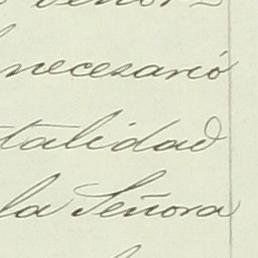 necesarió
talidad
la Señora